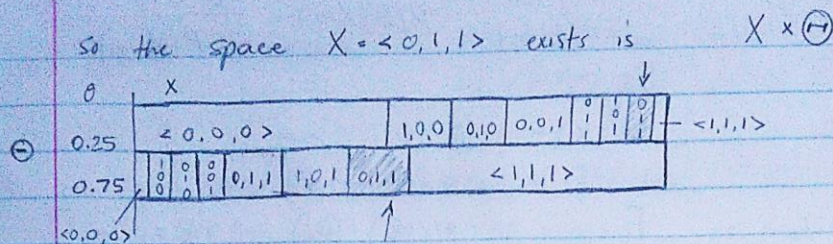 So the space X = <0,1,1> exists is X × Θ
θ X
0.25 <0,0,0> 1,0,0 0,1,0 0,0,1 011 101 011 <1,1,1>
Θ
0.75 100 010 001 0,1,1 1,0,1 0,1,1 <1,1,1>
<0,0,0>